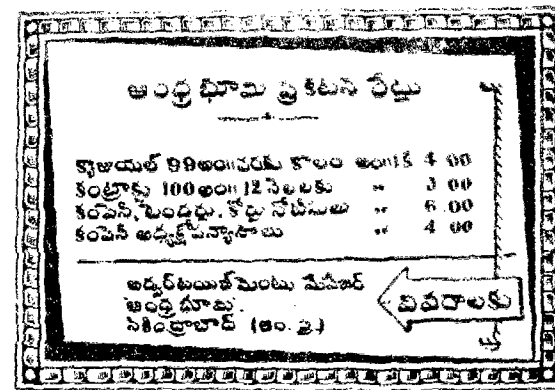 ఆంధ్రభూమి ప్రకటన రేట్లు
కాజుయల్ 99 అం॥ వరకు కాలం అం॥ 1కి 4 00
కంట్రాక్టు 100 అం॥ 12 నెలలకు ,, 3 00
కంపెనీ, టెండర్లు, కోర్టు నోటీసులు ,, 6.00
కంపెనీ అధ్యక్షోపన్యాసాలు ,, 4 00
అడ్వర్టయిజ్‌మెంటు మేనేజర్
ఆంధ్రభూమి.
సికింద్రాబాద్ (ఆం. ప్ర.)
వివరాలకు